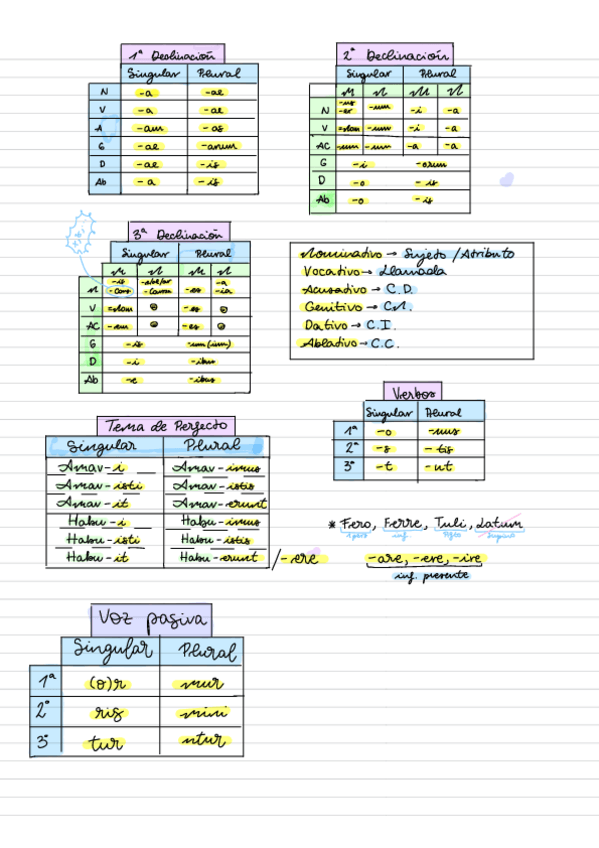 1ª Declinación
Singular Plural
N -a -ae
V -a -ae
A -am -as
G -ae -arum
D -ae -is
Ab -a -is
2ª Declinación
Singular Plural
M N M N
N -us -er -um -i -a
V =nom -um -i -a
AC -um -um -a -a
G -i -orum
D -o -is
Ab -o -is
3ª Declinación
Singular Plural
M N M N
N -is -cons -es -a -ia
V =nom -es
AC -em -es
G -is -um (ium)
D -i -ibus
Ab -e -ibus
Nominativo → Sujeto / Atributo
Vocativo → Llamada
Acusativo → C.D.
Genitivo → C.N.
Dativo → C.I.
Ablativo → C.C.
Verbos
Singular Plural
1ª -o -mus
2ª -s -tis
3ª -t -nt
Tema de Perfecto
Singular Plural
Amav-i Amav-imus
Amav-isti Amav-istis
Amav-it Amav-erunt
Habu-i Habu-imus
Habu-isti Habu-istis
Habu-it Habu-erunt / -ere
* Fero, Ferre, Tuli, Latum
inf.
-are, -ere, -ire
inf. presente
Voz pasiva
Singular Plural
1ª (o)r mur
2ª ris mini
3ª tur ntur